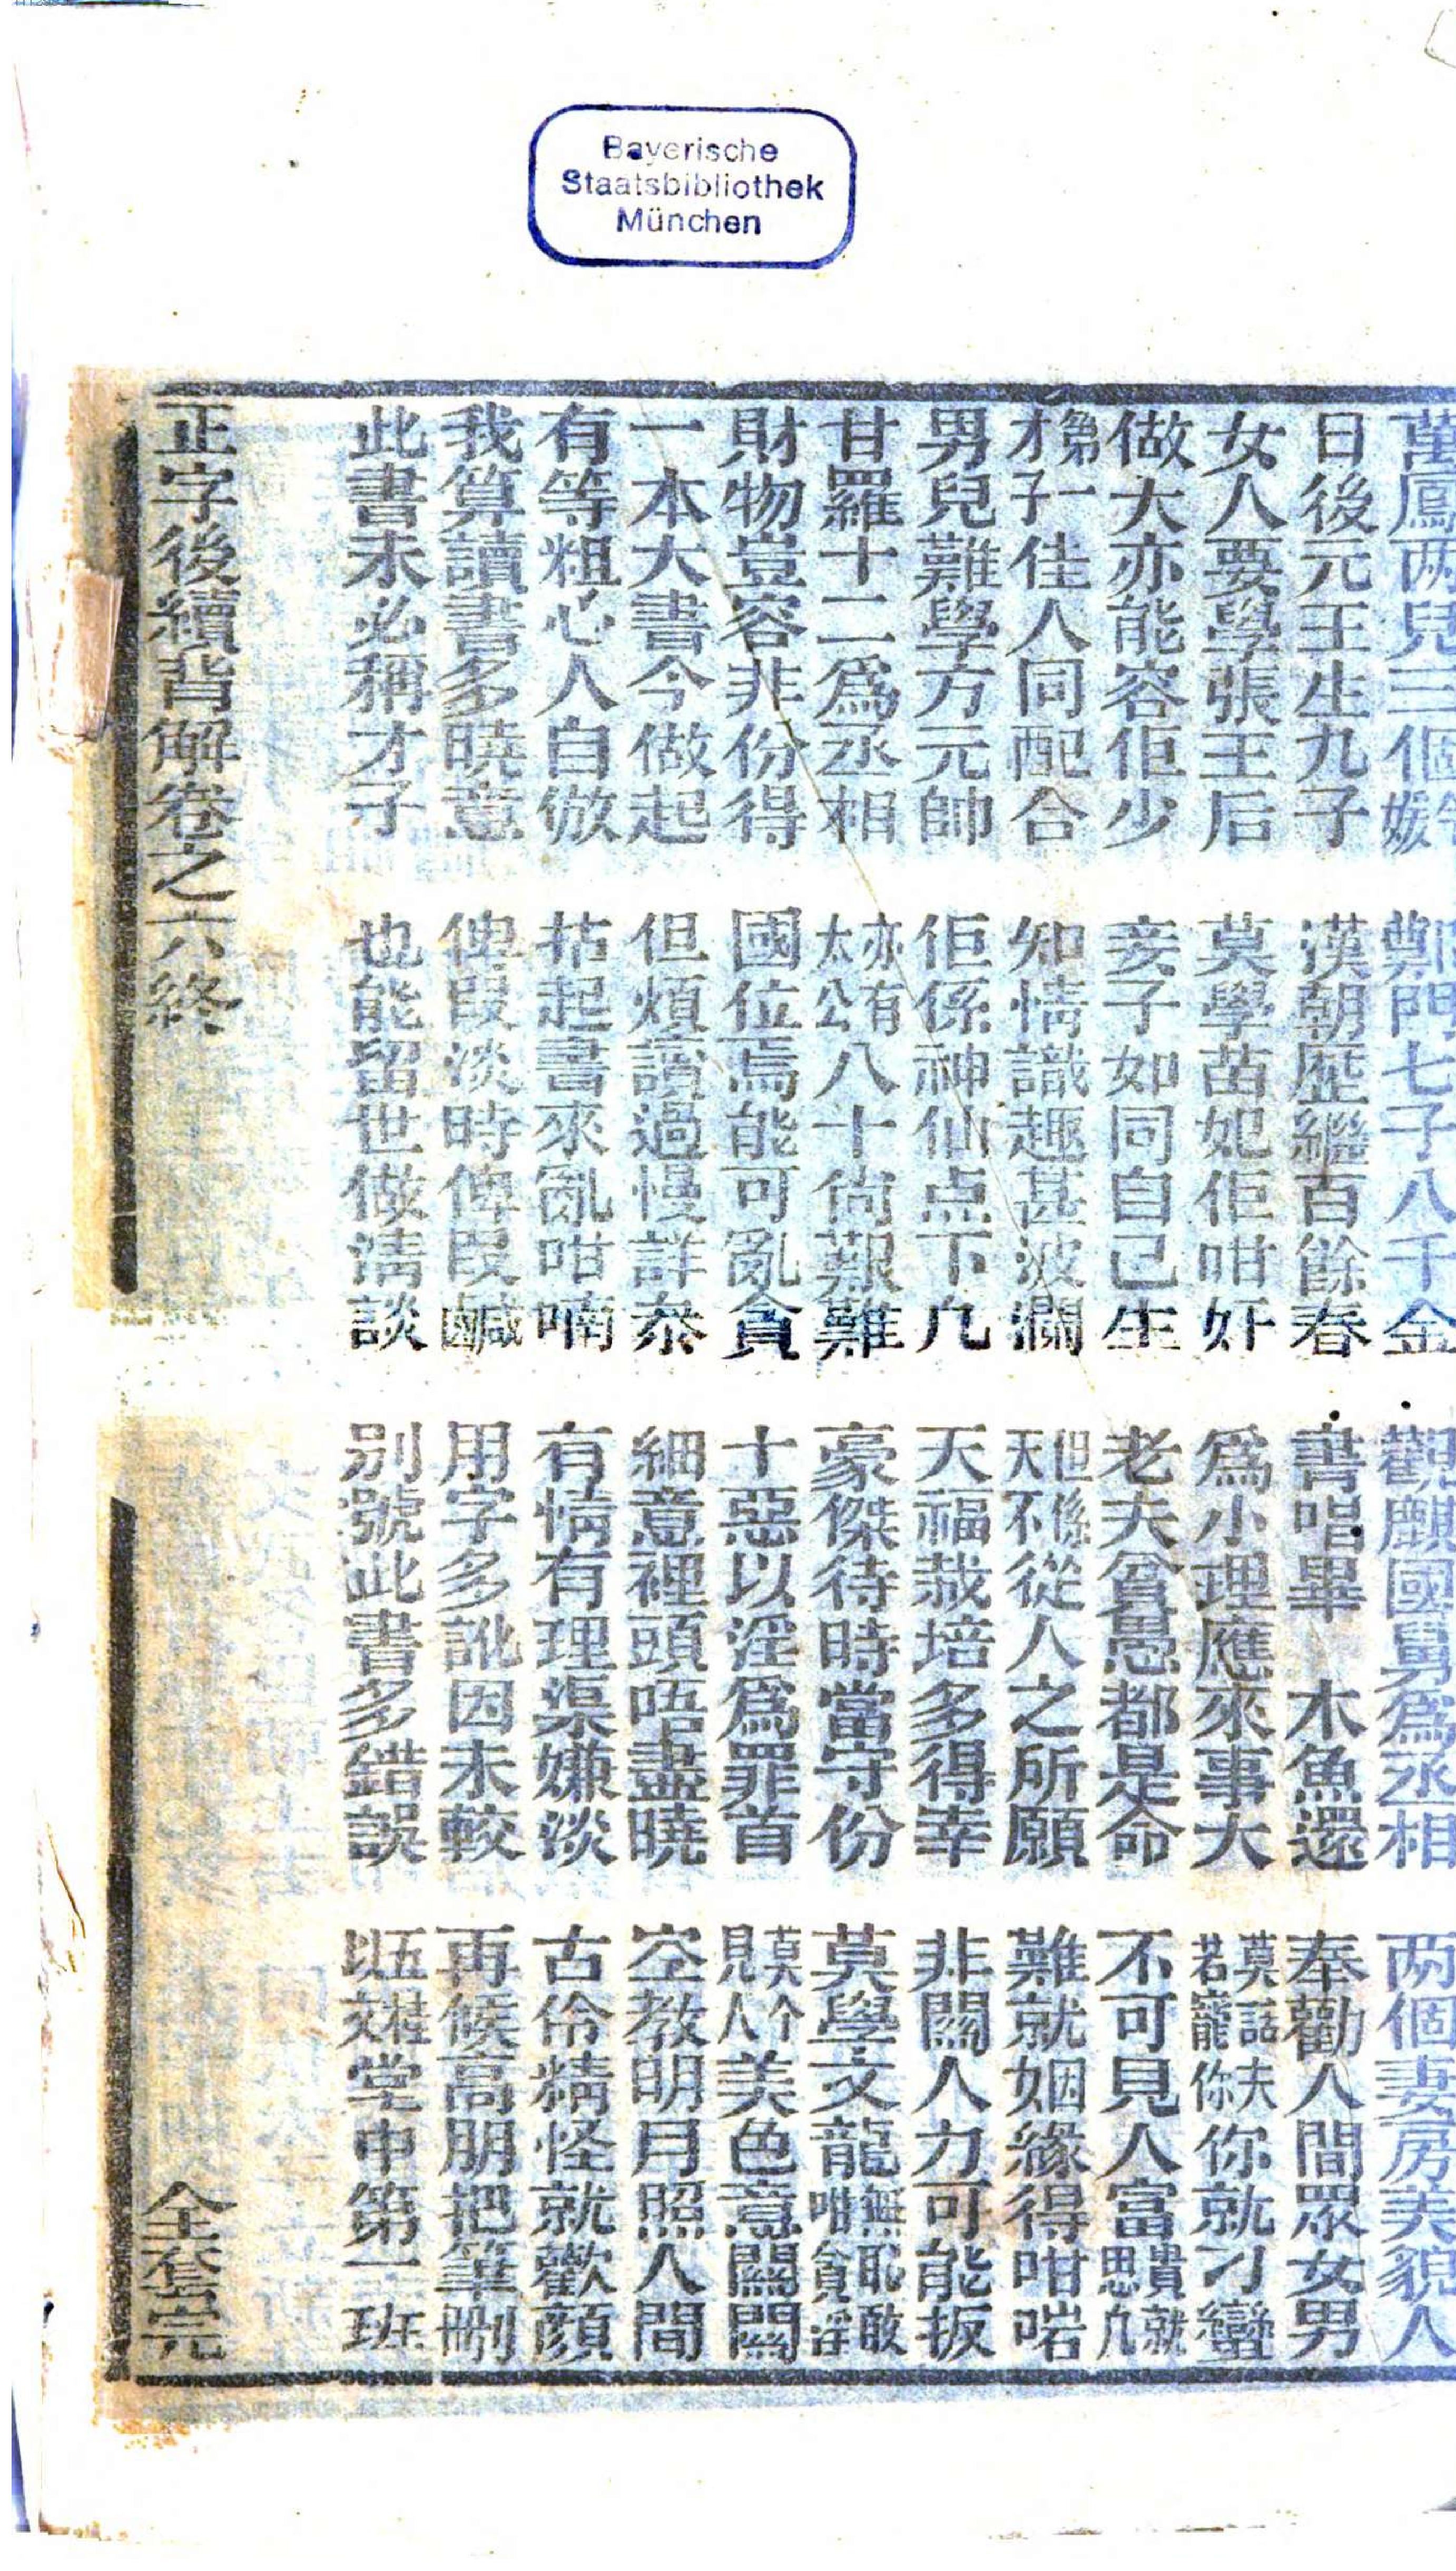 Bayerische
Staatsbibliothek
München
萬鳳两兒三個嫂 鄭門七子八千金 觀麒國舅爲丞相 两個妻房美貌人
日後元王生九子 漢朝歷繼百餘春 書唱畢 木魚還 奉勸人間眾女男
女人要學張王后 莫學苗妃佢咁奸 爲小理應來事大 莫話夫若寵你你就刁蠻
做大亦能容佢少 妾子如同自己生 老夫貧愚都是命 不可見人富貴就思凡
第一才子佳人同配合 知情識趣甚波瀾 但係天不從人之所願 難就姻緣得咁啱
男兒難學方元帥 佢係神仙点下凡 天福栽培多得幸 非關人力可能扳
甘羅十二爲丞相 亦有太公八十尙艱難 豪傑待時當守份 莫學文龍無恥敢咁貪淫
財物豈容非份得 國位焉能可亂貪 十惡以淫爲罪首 莫个見人美色意關關
一本大書今做起 但煩讀過慢詳泰 細意裡頭唔盡曉 空教明月照人間
有等粗心人自倣 拈起書來亂咁喃 有情有理渠嫌淡 古伶精怪就歡顔
我算讀書多曉意 俾段淡時俾段鹹 用字多訛因未較 再候高朋把筆刪
此書未必稱才子 也能留世做清談 別號此書多錯誤 五桂以文堂中第一班
正字後續背解卷之六終 全套完